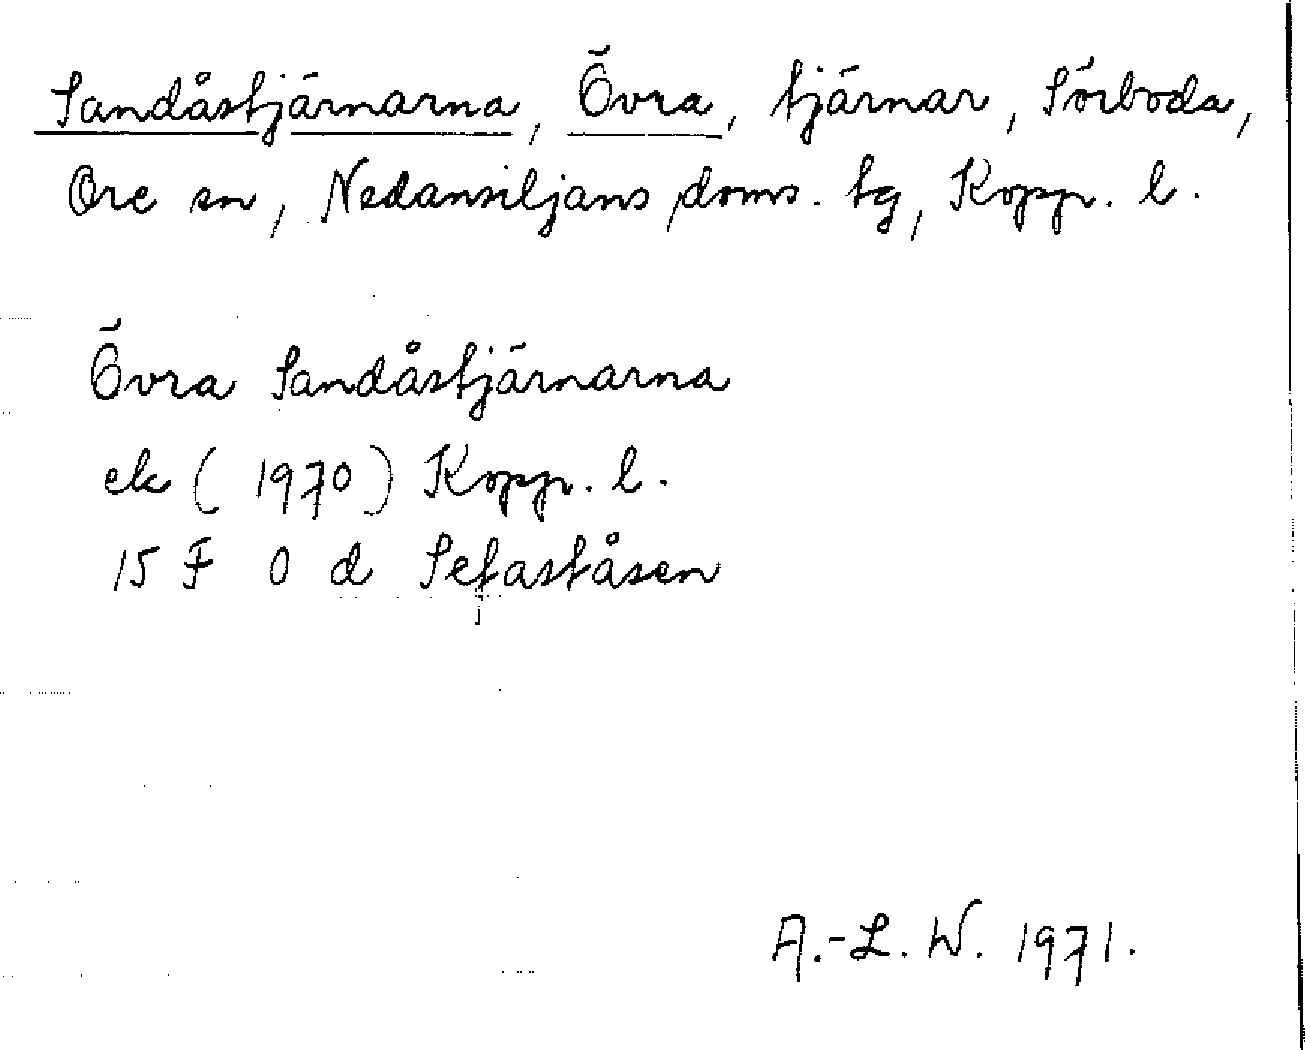 Sandåstjärnarna, Övra, tjärnar, Sörboda,
Ore sn, Nedansiljans doms. tg, Kopp. l.
Övra Sandåstjärnarna
ek (1970) Kopp. l.
15 F 0 d Sefaståsen
A.-L. W. 1971.